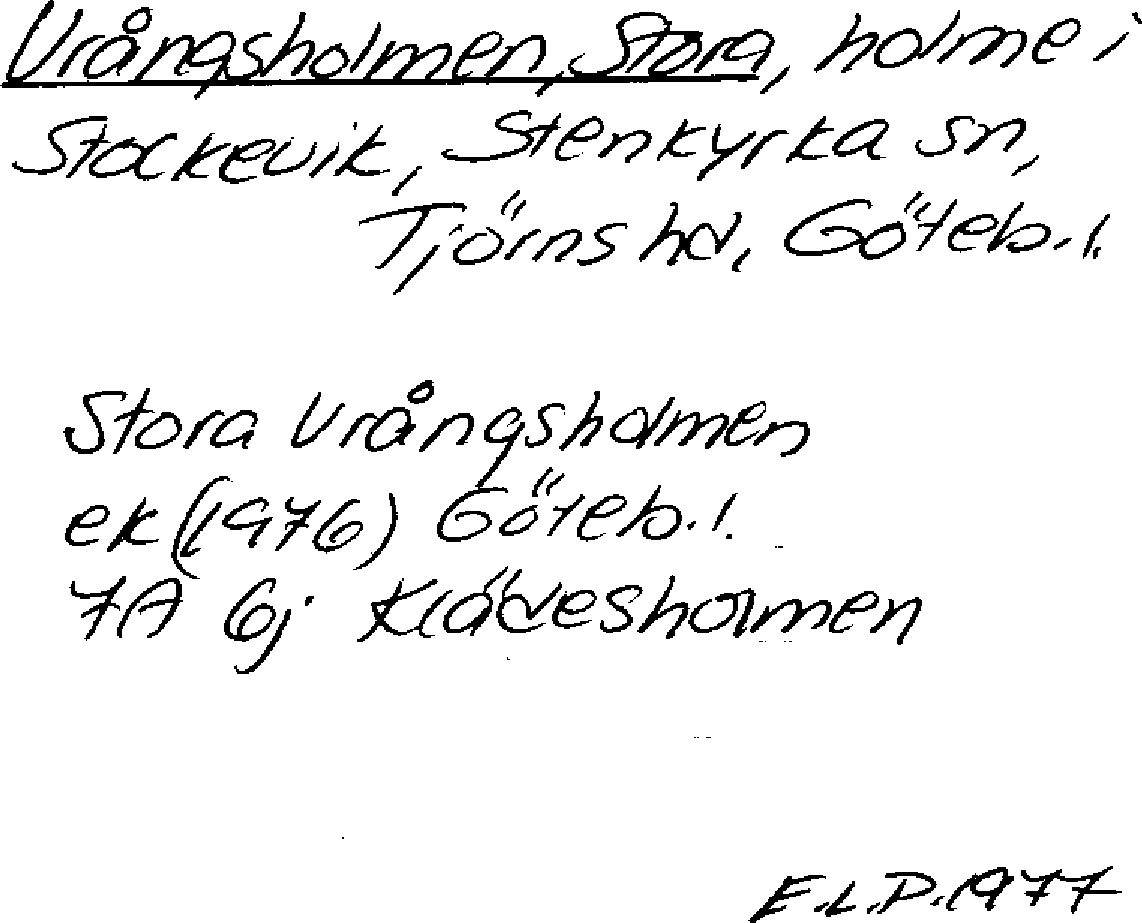 Vrångsholmen, Stora, holme i
Stockevik, Stenkyrka sn,
Tjörns hd, Göteb. l.
Stora Vrångsholmen
ek (1976) Göteb. l.
7A 6j Klädesholmen
E.L.P. 1977